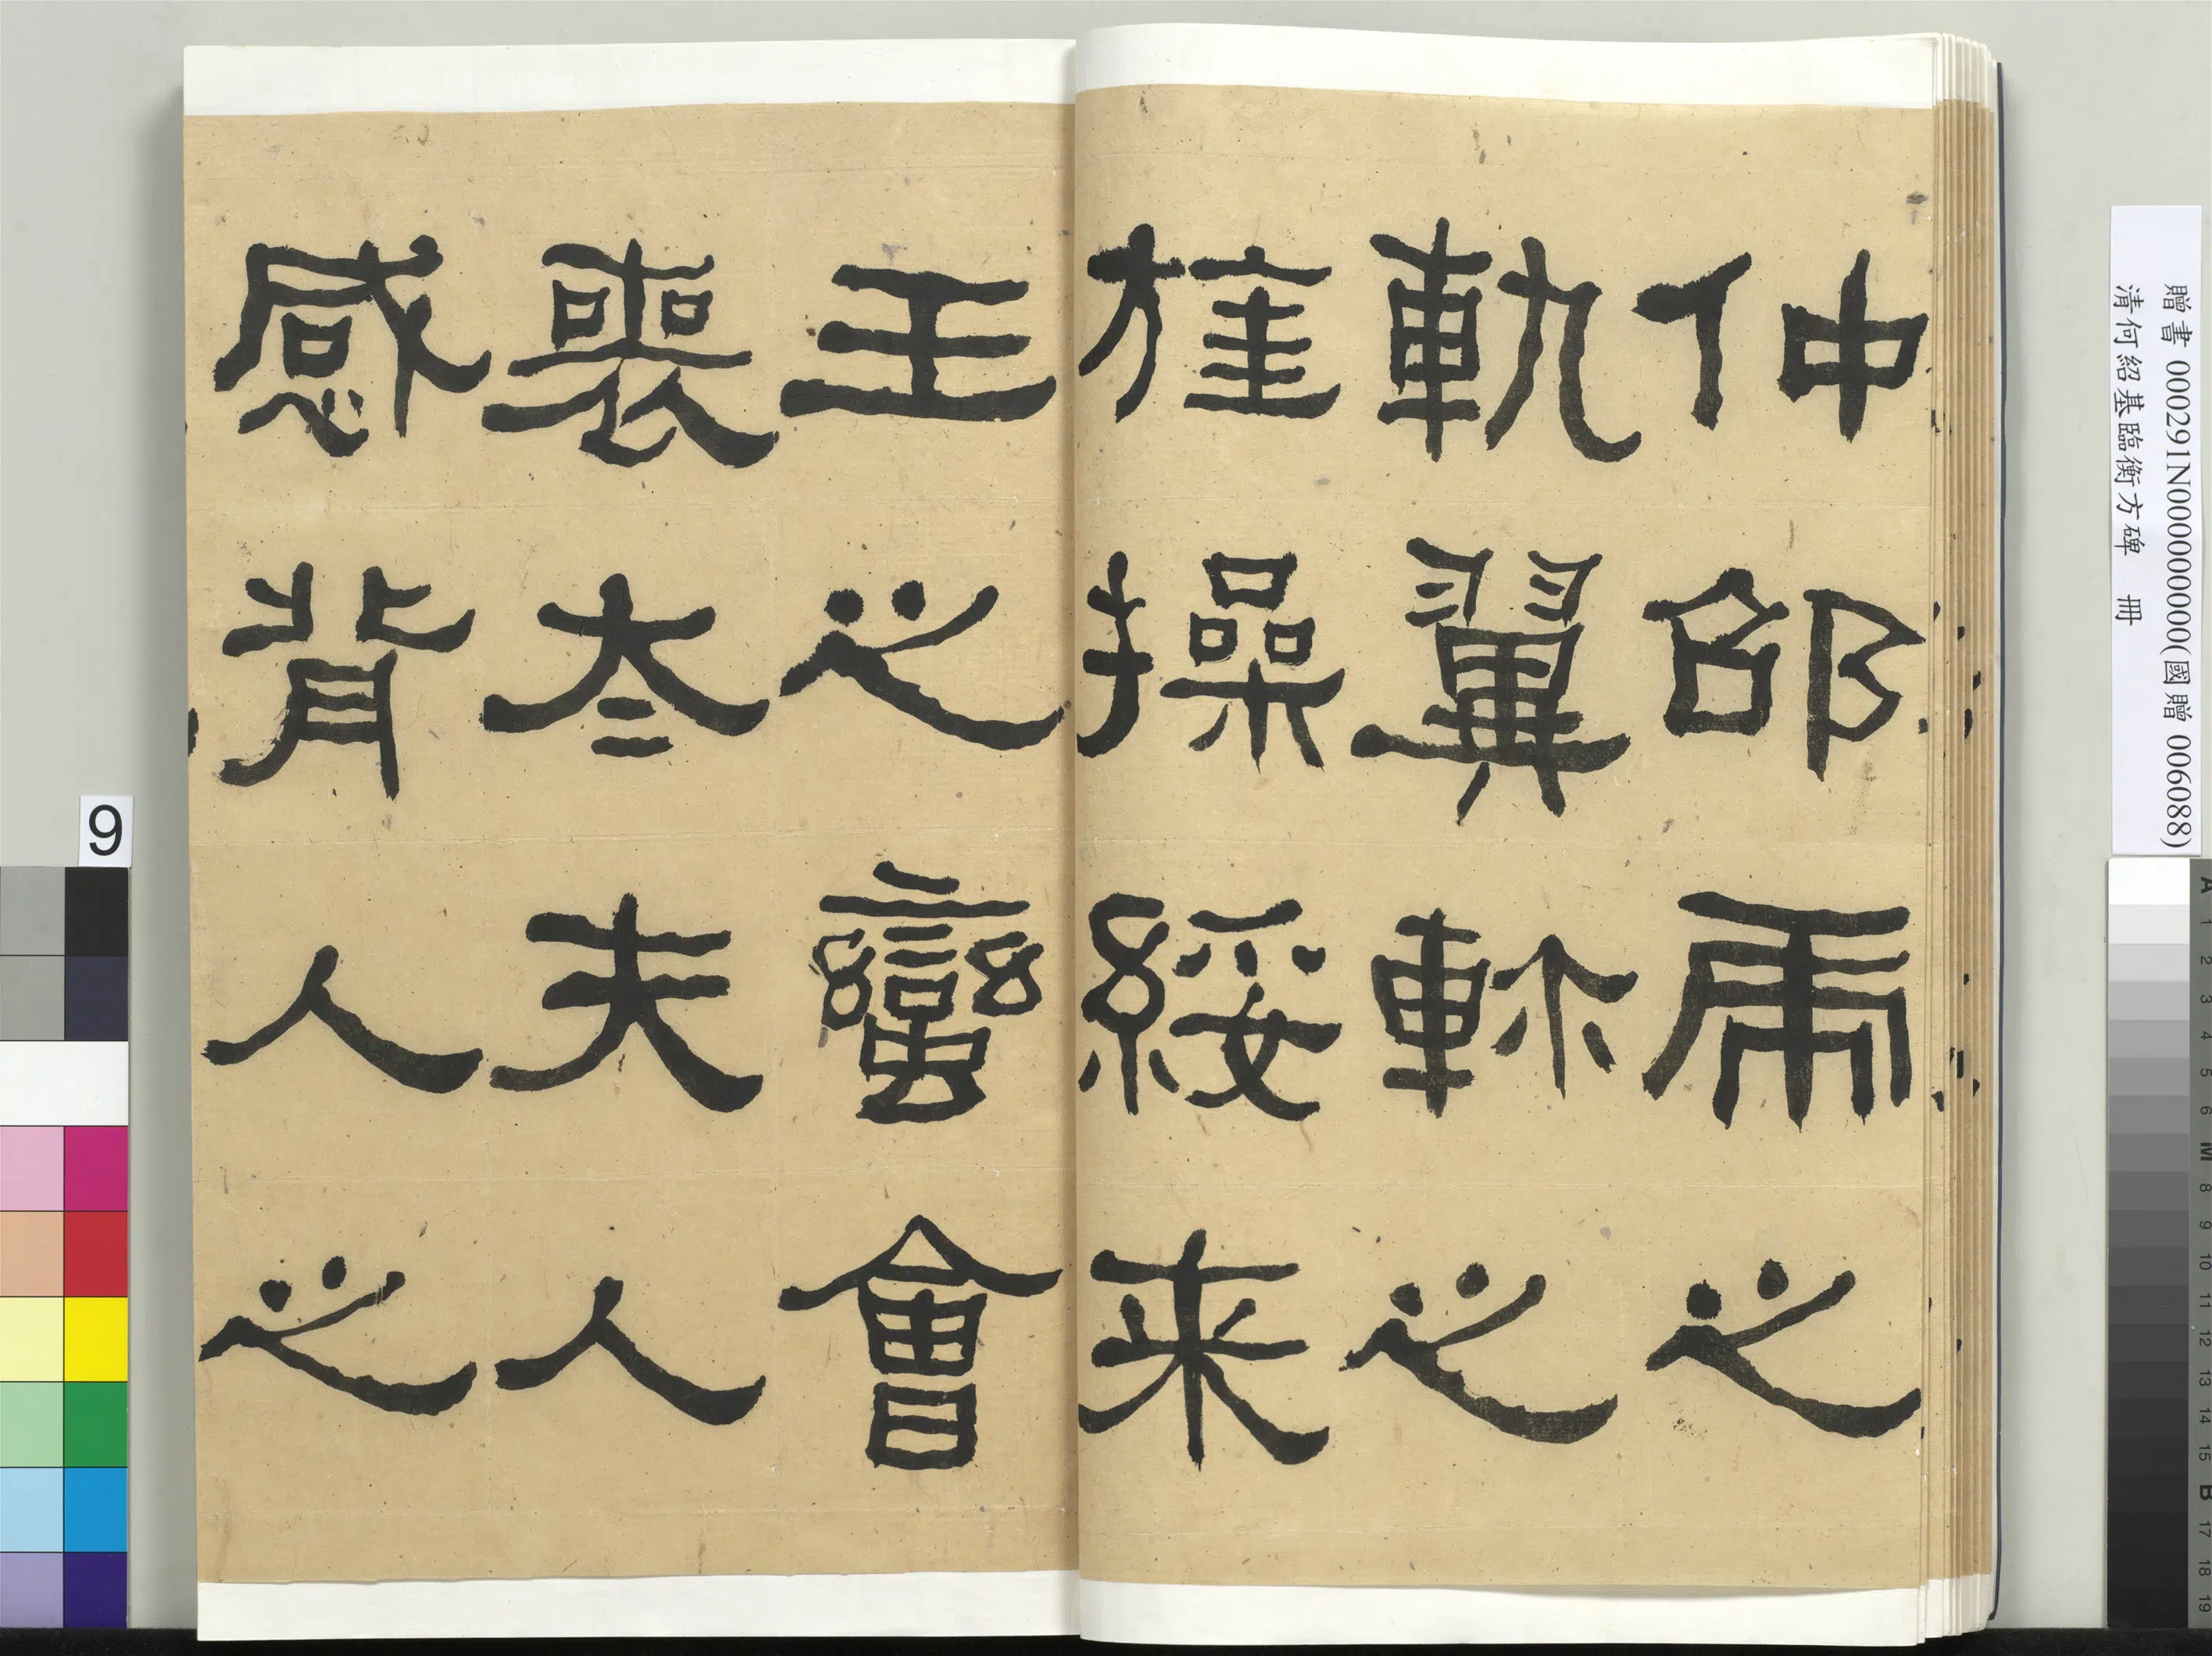 贈書 000291N000000000(國贈 006088)
清何紹基臨衡方碑 冊
仲邵虎之
軌翼軫之
旌操綏来
王之蠻會
喪太夫人
感背人之
9
A 1 2 3 4 5 6 M 8 9 10 11 12 13 14 15 B 17 18 19